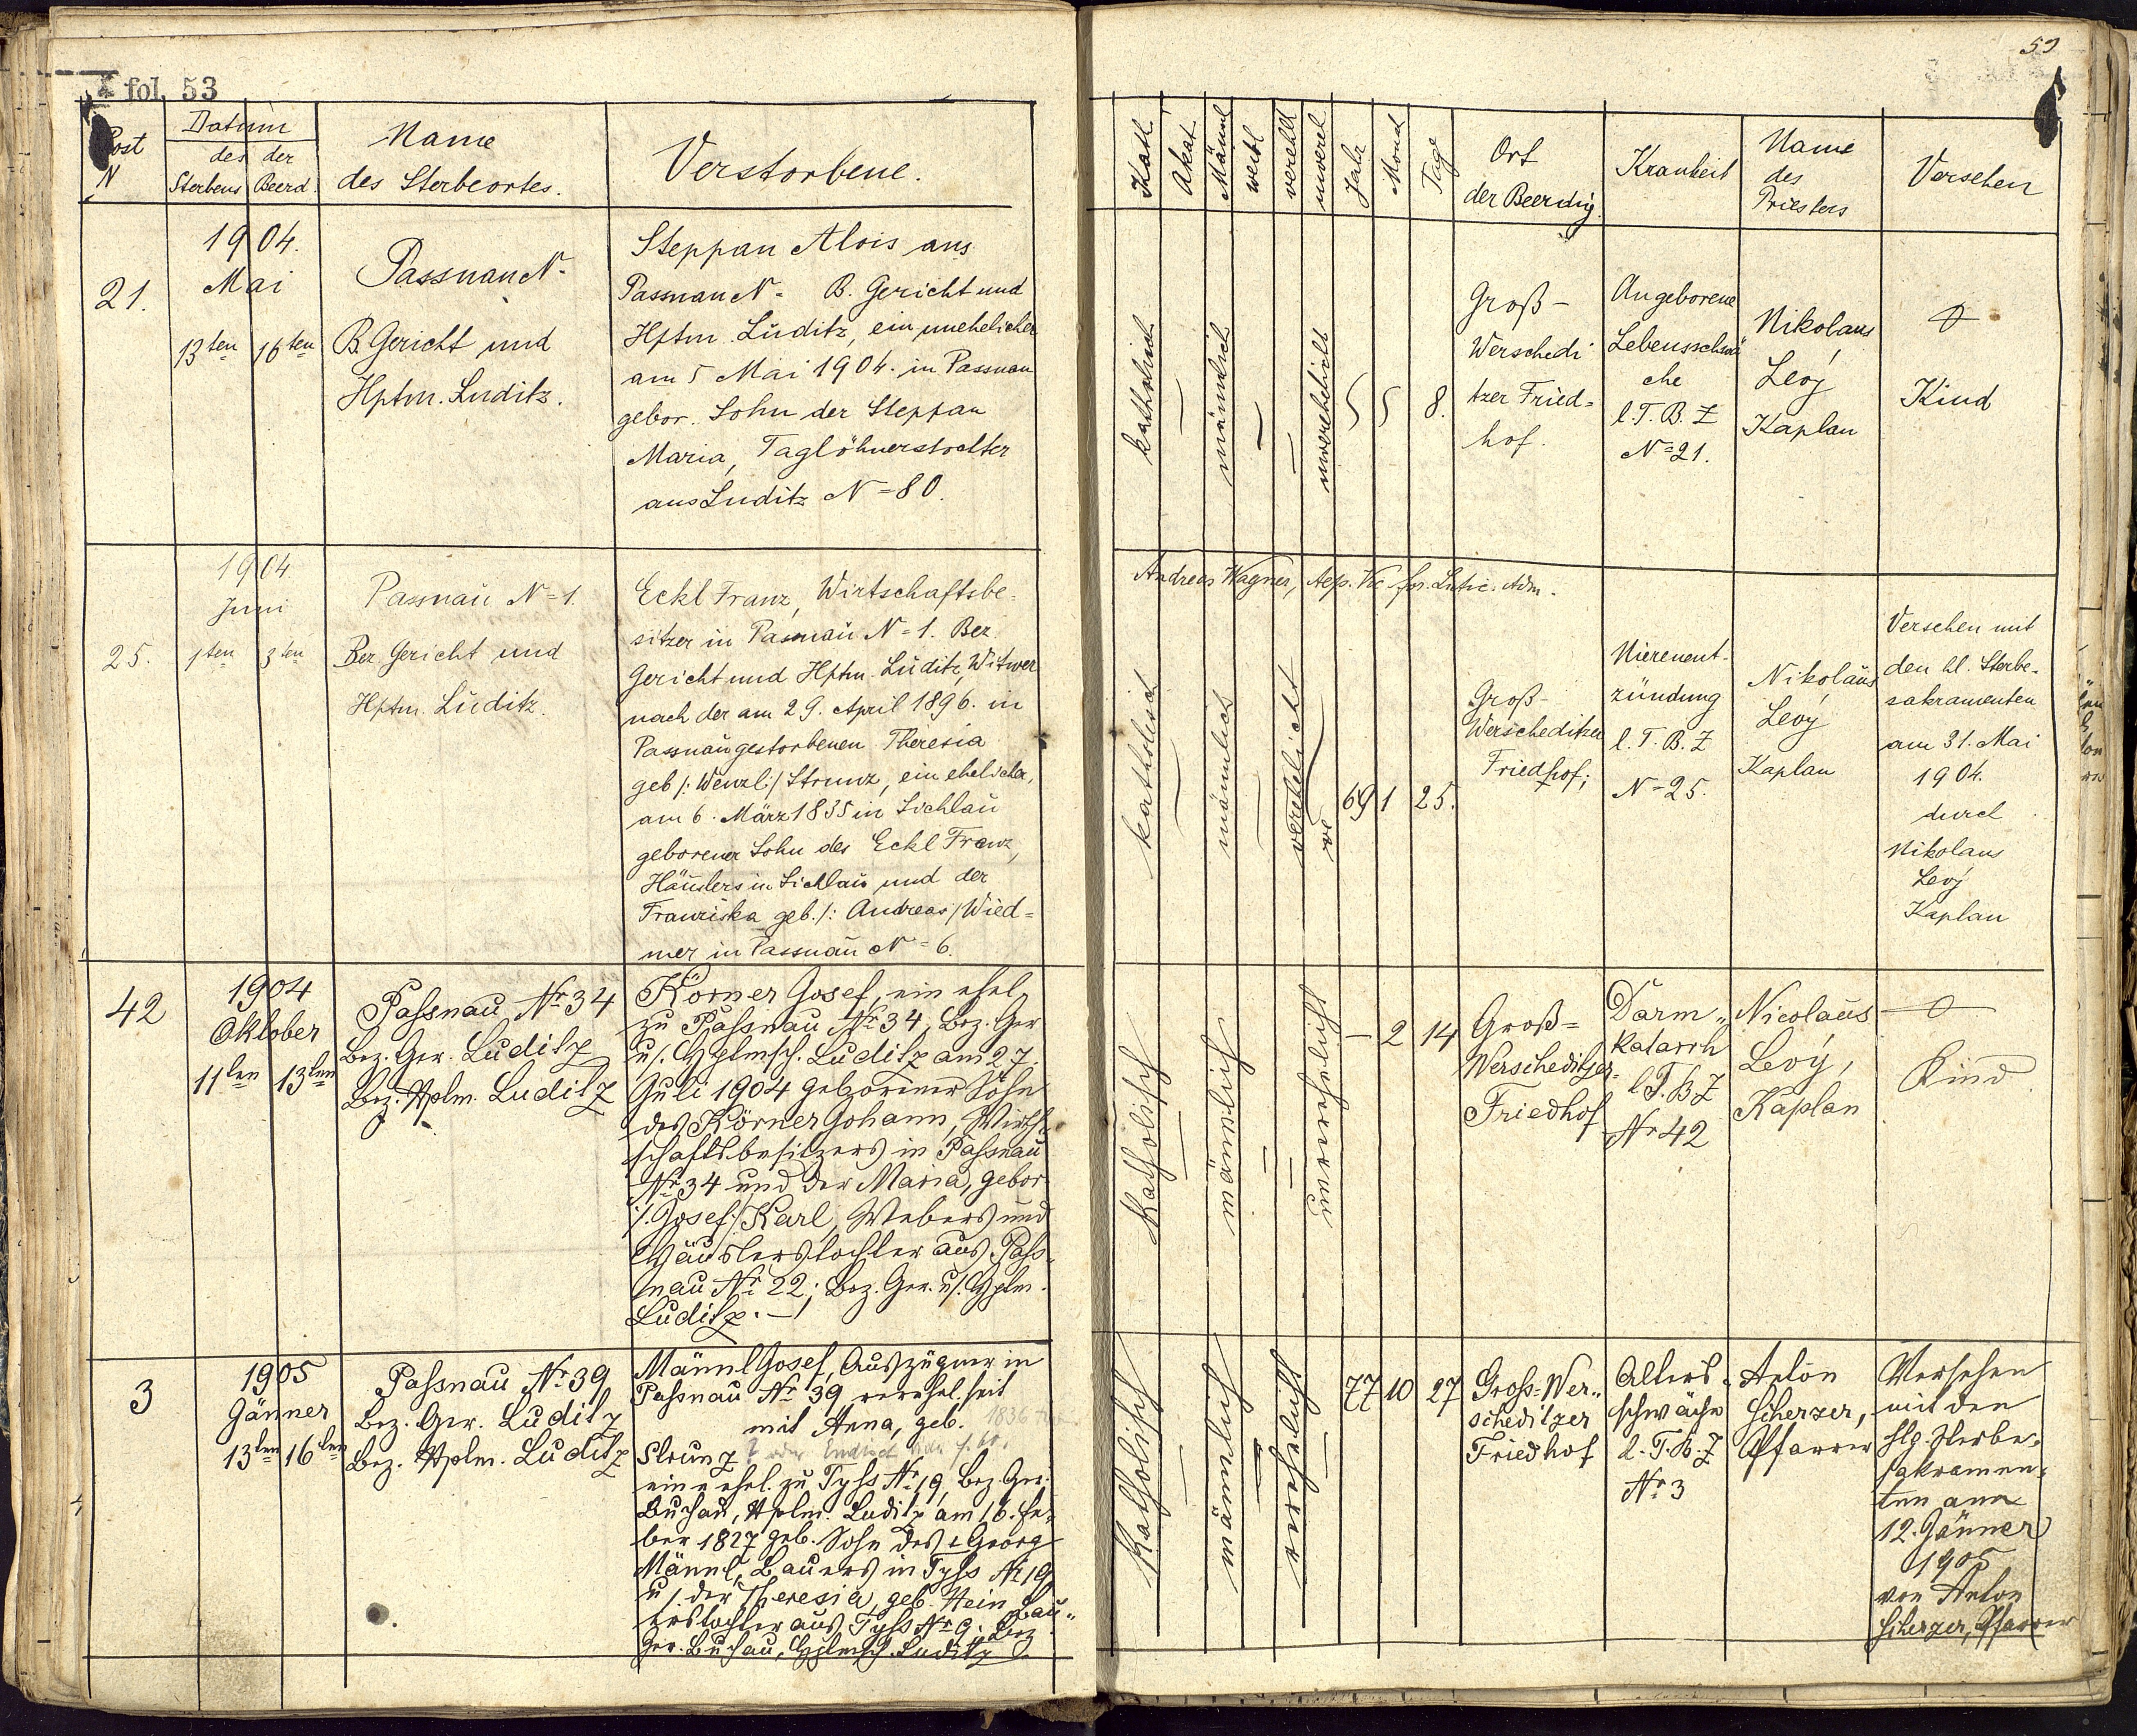 fol. 53
Post
N
Datum
des Sterbens
der Beerd.
Name
des Sterbeortes.
Verstorbene.
21.
1904.
Mai
13ten 16ten
Passnau N-
B. Gericht und
Hptm. Luditz.
Steppan Alois aus
Passnau N= B. Gericht und
Hptm. Luditz, ein unehelicher
am 5 Mai 1904. in Passnau
gebor. Sohn der Steppan
Maria, Taglöhnerstochter
aus Luditz N=80.
25.
1904
Juni
1ten 3ten
Passnau N=1.
Bez. Gericht und
Hptm. Luditz.
Eckl Franz, Wirtschaftsbe-
sitzer in Passnau N=1. Bez.
Gericht und Hptm. Luditz, Witwer
nach der am 29. April 1896. in
Passnau gestorbenen Theresia
geb /: Wenzl :/ Strunz, ein ehelicher,
am 6. März 1835 in Sichlau
geborener Sohn des Eckl Franz,
Häuslers in Sichlau und der
Franziska geb. /: Andreas / Wied=
mer in Passnau N=6.
42
1904
Oktober
11ten 13ten
Passnau Nr 34
Bez. Ger. Luditz
Bez. Hptm. Luditz
Körner Josef, ein ehel.
zu Passnau Nr 34, Bez. Ger
u/. Hptmsch. Luditz am 27.
Juli 1904 geborener Sohn
des Körner Johann, Wirt-
schaftsbesitzers in Passnau
Nr 34 und der Maria, gebor
/. Josef / Karl, Webers und
Häuslerstochter aus Pass-
nau Nr 22; Bez. Ger. u/. Hptm.
Luditz. —
3
1905
Jänner
13ten 16ten
Passnau Nr 39
Bez. Ger. Luditz
Bez. Hptm. Luditz
Männl Josef, Auszügner in
Passnau Nr 39, verehel. seit
mit Anna, geb. 1836
Strunz
ein ehel. zu Tyss Nr 19, Bez. Ger.
Buchau, Hptm. Luditz am 16. Fe-
ber 1827 geb. Sohn des + Georg
Männl, Bauers in Tyss Nr 19
u/. der Theresia, geb. Hein Bau-
erstochter aus Tyss Nr 9; Bez
Ger. Buchau, Hptmsch. Luditz
59
Kath.
Akat.
Männl
weibl
verehel
unverel
Jahr
Monat
Tage
Ort
der Beerdig.
Krankheit
Name
des
Priesters
Versehen
katholisch
männlich
unverehelicht
8.
Groß-
Werschedi
tzer Fried=
hof.
Angeborene
Lebensschwä
che
l. T. B. Z
N=21.
Nikolaus
Levý
Kaplan
Kind
Andreas Wagner,
katholisch
männlich
verehelicht
69 1 25.
Groß-
Werscheditzer
Friedhof;
Nierenent-
zündung
l. T. B. Z
N=25.
Nikolaus
Levý
Kaplan
Versehen mit
den hl. Sterbe-
sakramenten
am 31. Mai
1904.
durch
Nikolaus
Levý
Kaplan
Katholisch
männlich
unverehelicht
— 2 14
Groß=
Werscheditzer-
Friedhof
Darm-
katarrh
l. T. B. Z
Nr 42
Nicolaus
Levý,
Kaplan
Kind
Katholisch
männlich
verehelicht
77 10 27
Gross-Wer-
scheditzer
Friedhof
Alters-
schwäche
l. T. B. Z
Nr 3
Anton
Scherzer,
Pfarrer
Versehen
mit den
hlg. Sterbe-
sakramen-
ten am
12. Jänner
1905
von Anton
Scherzer, Pfarrer